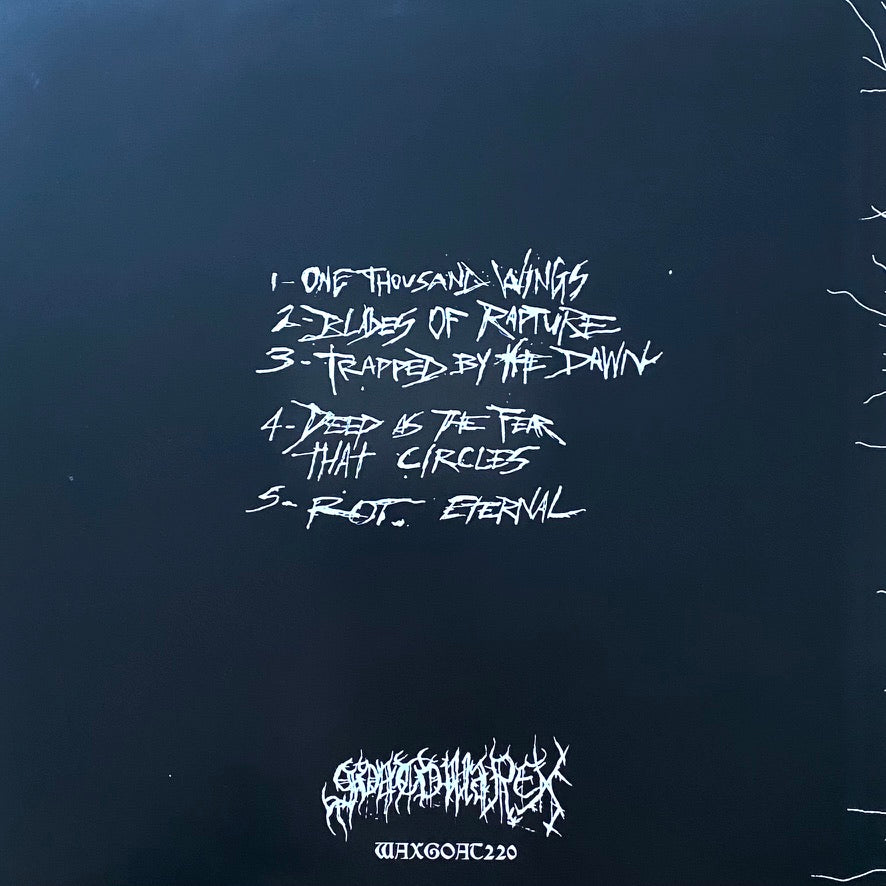 1- ONE THOUSAND WINGS
2- BLADES OF RAPTURE
3- TRAPPED BY THE DAWN
4- DEED AS THE FEAR
THAT CIRCLES
5- ROT ETERNAL
GOATOWAREX
WAXGOAT220